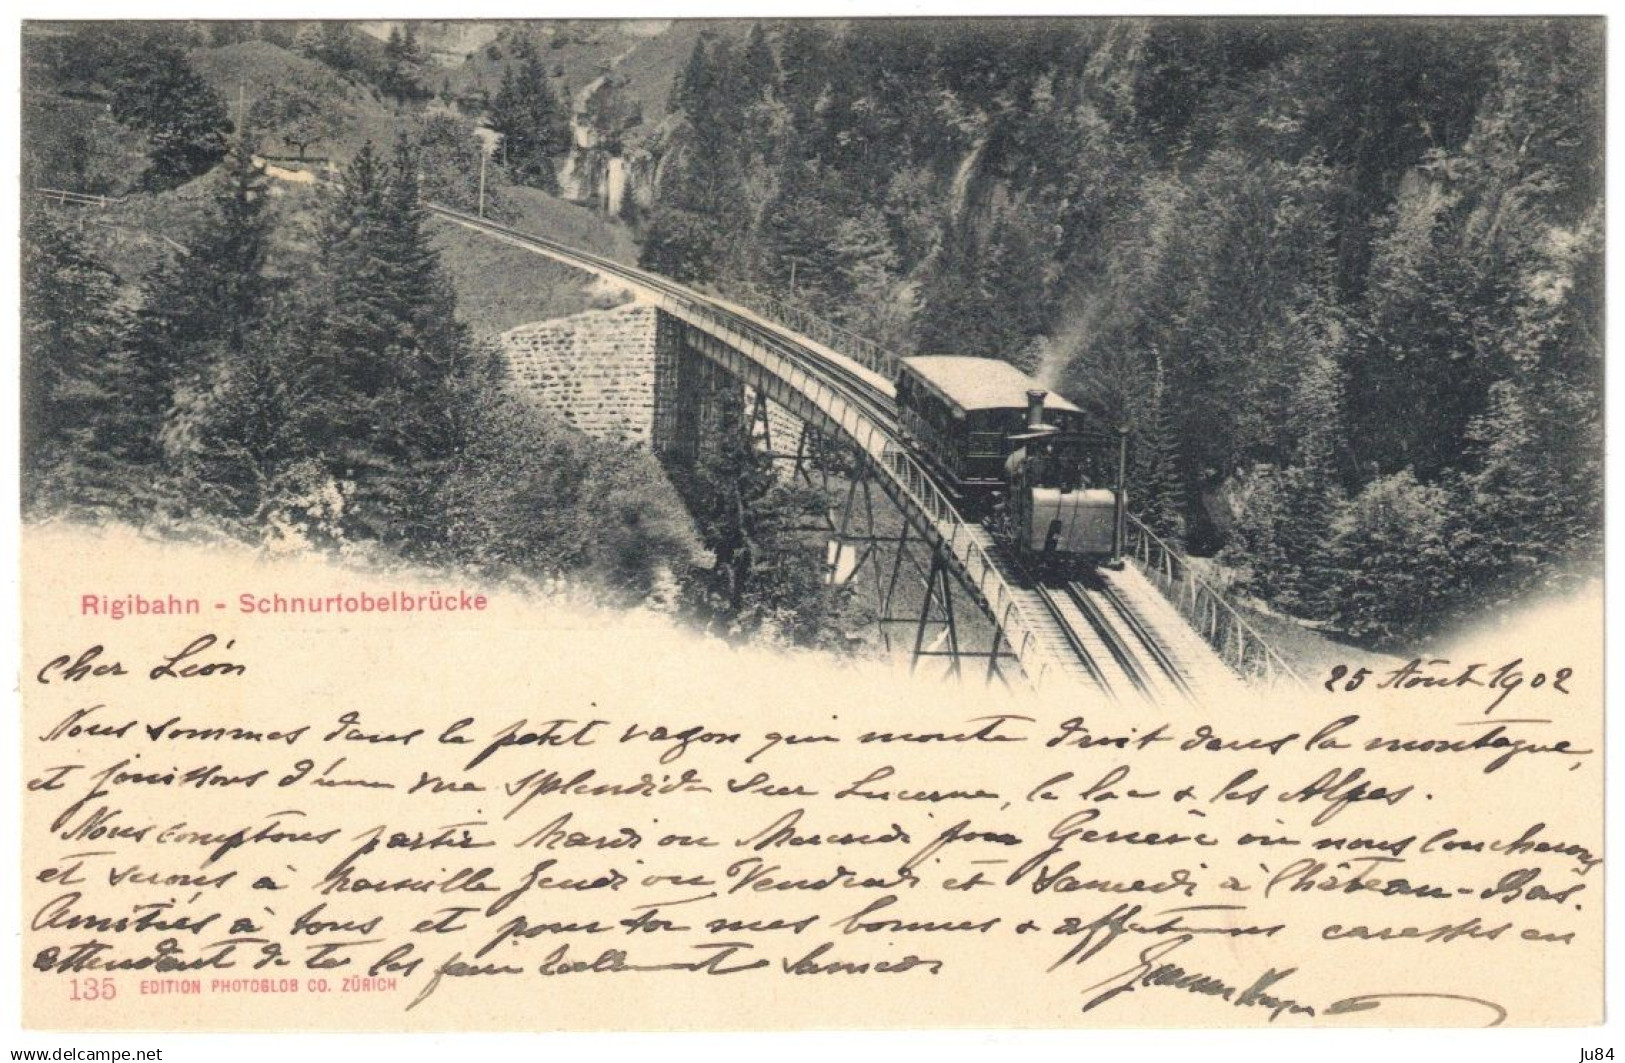 Rigibahn - Schnurtobelbrücke
25 Août 1902
Cher Léon
Nous sommes dans le petit vagon qui monte droit dans la montagne,
et jouissons d'une vue splendide sur Lucerne, le lac & les Alpes.
Nous comptons partir Mardi ou Mercredi pour Genève où nous coucherons
et serons à Marseille Jeudi ou Vendredi et Samedi à Château-Bas.
Amitiés à tous et pour toi mes bonnes & affectueuses caresses en
attendant de te les faire réellement Samedi
135 EDITION PHOTOGLOB CO. ZÜRICH
www.delcampe.net
Ju84